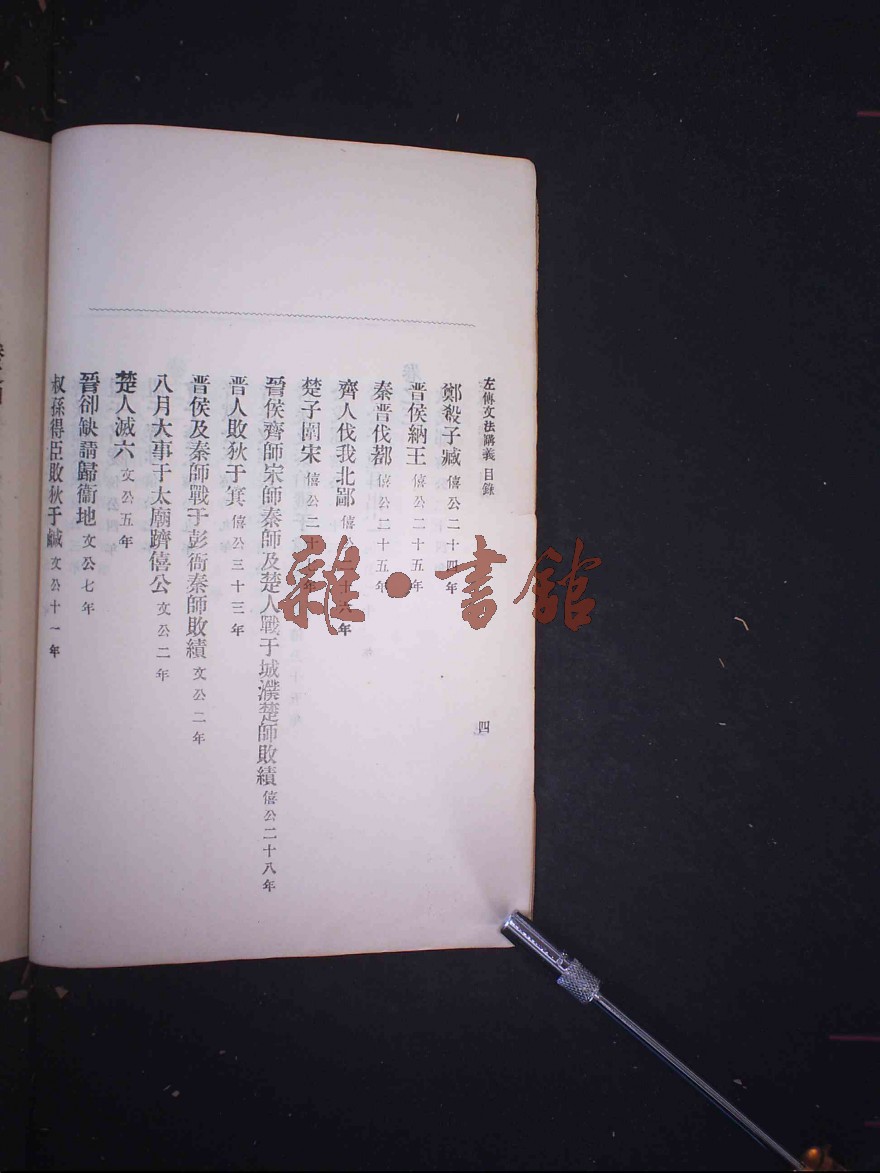 左傳文法講義 目錄
四
鄭殺子臧 僖公二十四年
晉侯納王 僖公二十五年
秦晉伐鄀 僖公二十五年
齊人伐我北鄙 僖公二十六年
楚子圍宋 僖公二十七年
晉侯齊師宋師秦師及楚人戰于城濮楚師敗績 僖公二十八年
晉人敗狄于箕 僖公三十三年
晉侯及秦師戰于彭衙秦師敗績 文公二年
八月大事于太廟躋僖公 文公二年
楚人滅六 文公五年
晉卻缺請歸衞地 文公七年
叔孫得臣敗狄于鹹 文公十一年
雜·書館